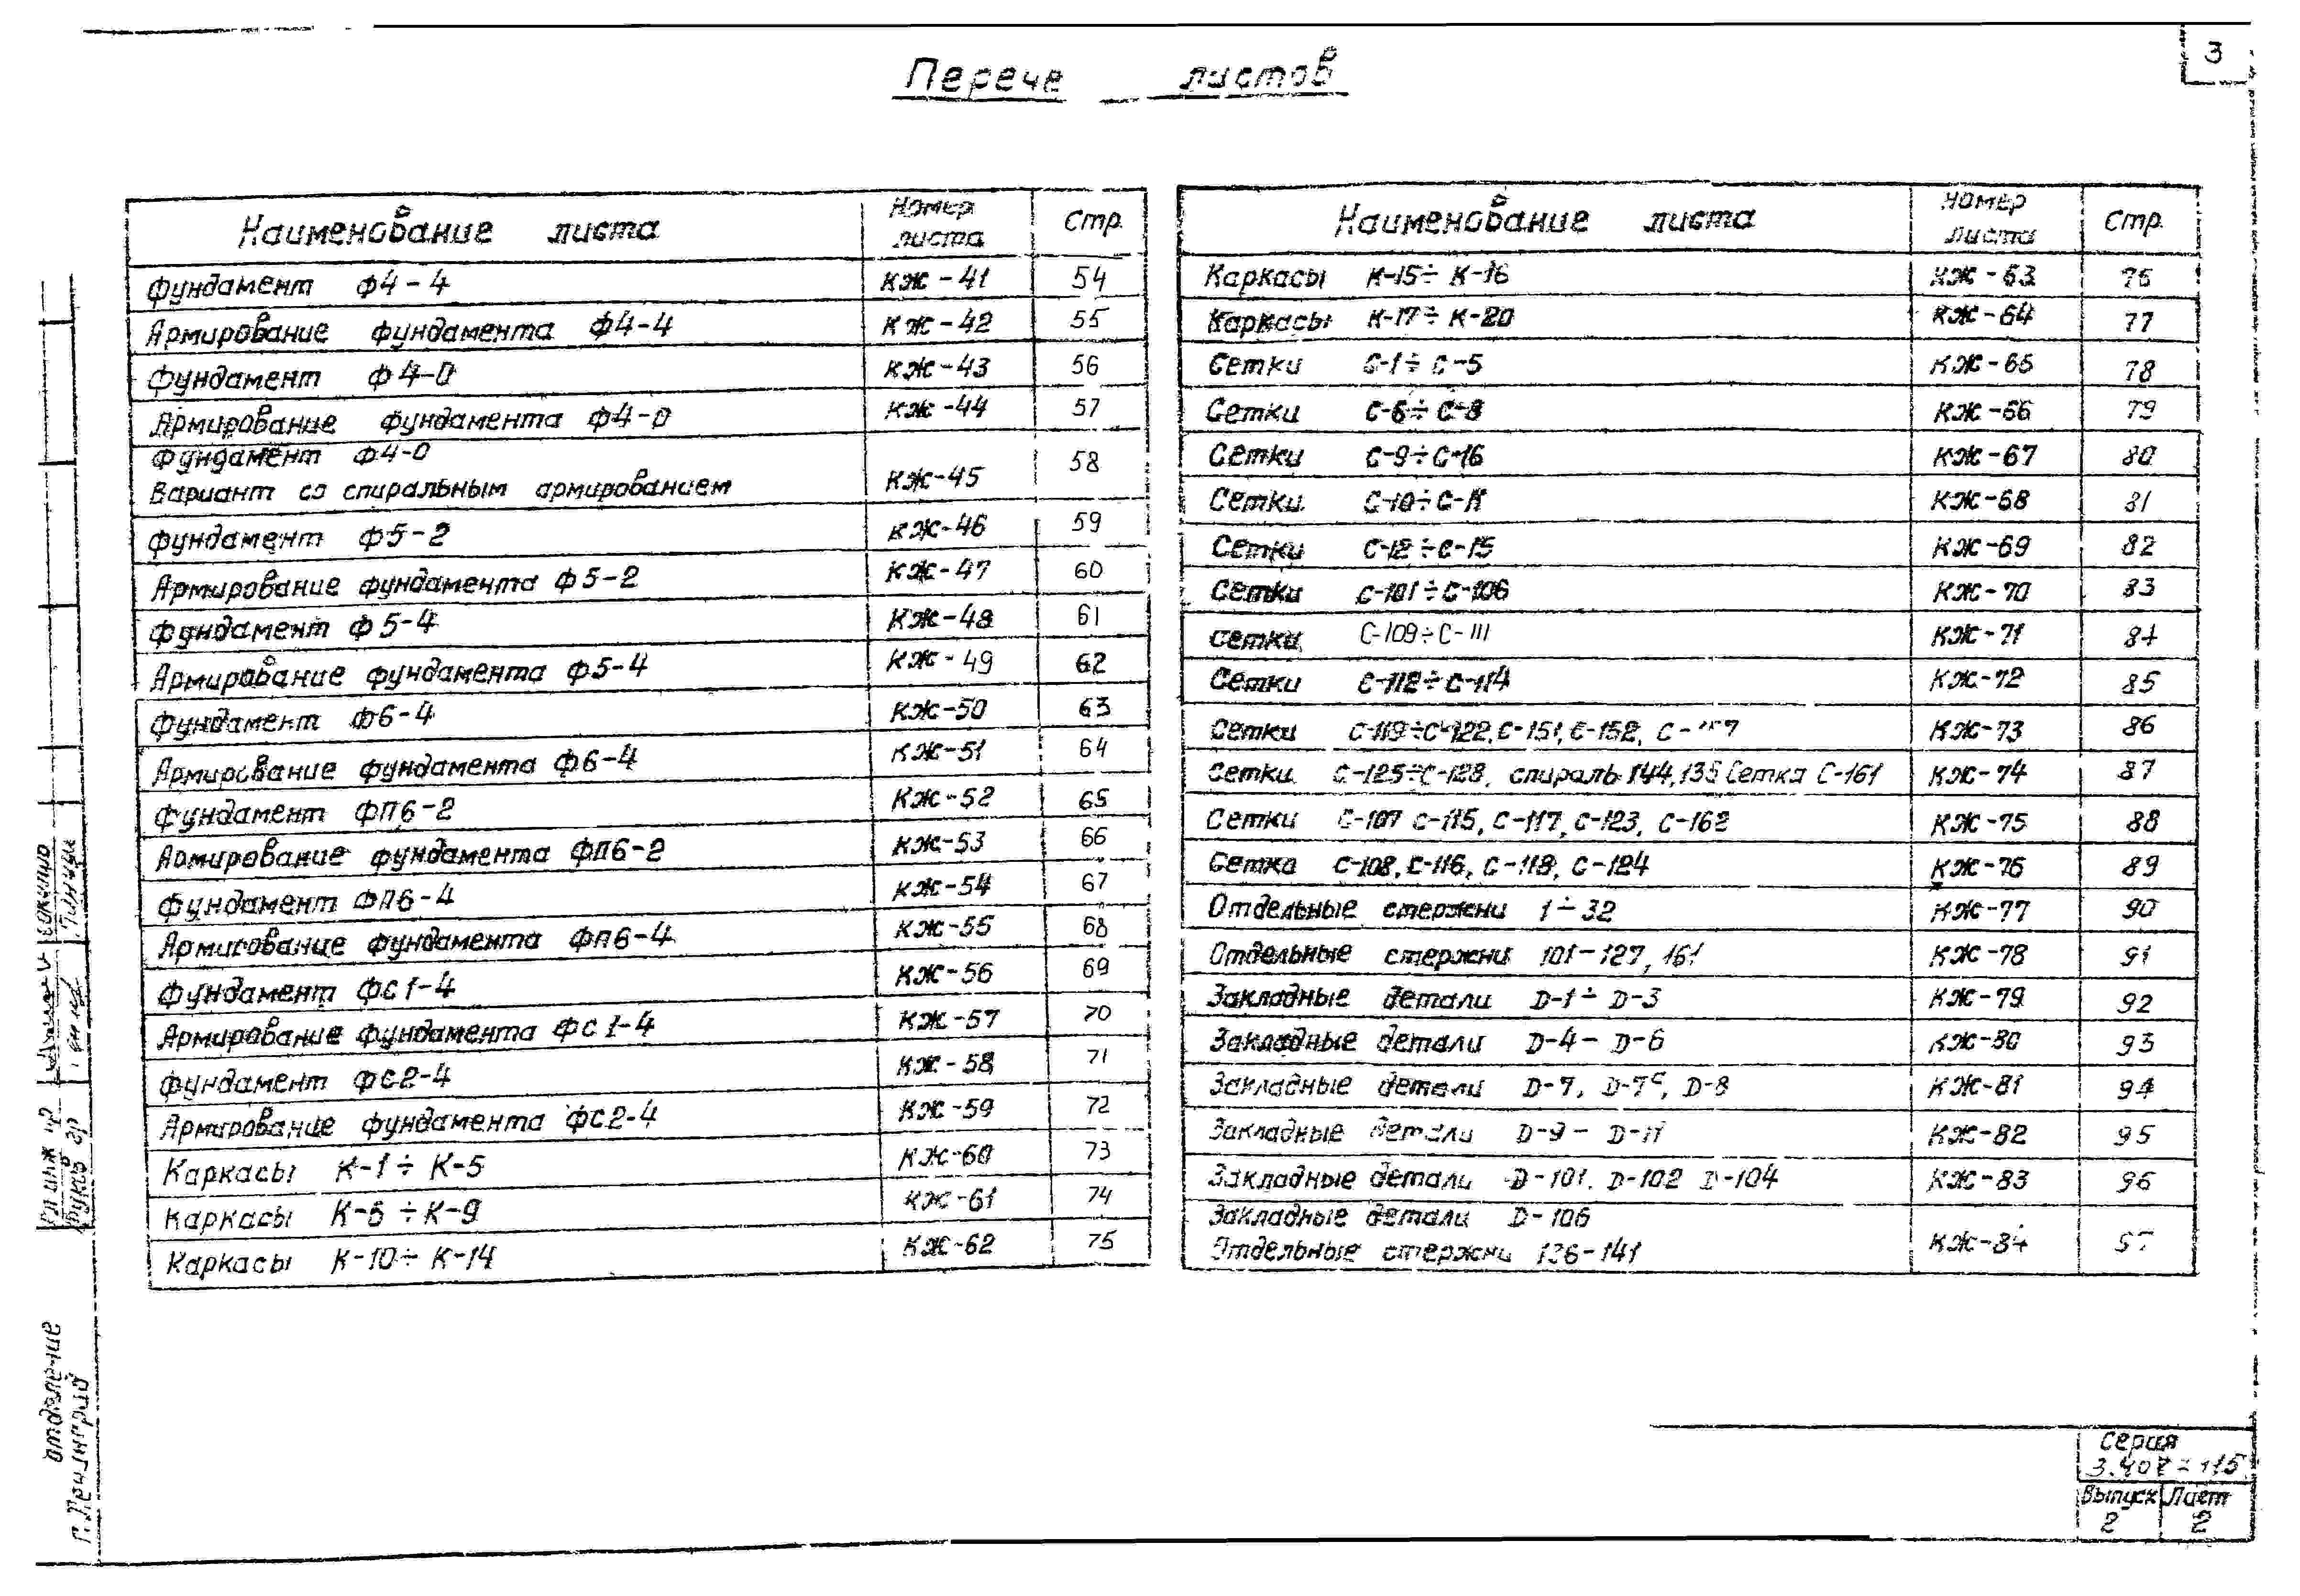 3
Перече листов
Наименование листа Номер листа Стр.
Фундамент Ф4-4 КЖ-41 54
Армирование фундамента Ф4-4 КЖ-42 55
Фундамент Ф4-0 КЖ-43 56
Армирование фундамента Ф4-0 КЖ-44 57
Фундамент Ф4-0
Вариант со спиральным армированием КЖ-45 58
Фундамент Ф5-2 КЖ-46 59
Армирование фундамента Ф5-2 КЖ-47 60
Фундамент Ф5-4 КЖ-48 61
Армирование фундамента Ф5-4 КЖ-49 62
Фундамент Ф6-4 КЖ-50 63
Армирование фундамента Ф6-4 КЖ-51 64
Фундамент ФП6-2 КЖ-52 65
Армирование фундамента ФП6-2 КЖ-53 66
Фундамент ФП6-4 КЖ-54 67
Армирование фундамента ФП6-4 КЖ-55 68
Фундамент ФС1-4 КЖ-56 69
Армирование фундамента ФС1-4 КЖ-57 70
Фундамент ФС2-4 КЖ-58 71
Армирование фундамента ФС2-4 КЖ-59 72
Каркасы К-1÷К-5 КЖ-60 73
Каркасы К-6÷К-9 КЖ-61 74
Каркасы К-10÷К-14 КЖ-62 75
Наименование листа Номер листа Стр.
Каркасы К-15÷К-16 КЖ-63 76
Каркасы К-17÷К-20 КЖ-64 77
Сетки С-1÷С-5 КЖ-65 78
Сетки С-6÷С-8 КЖ-66 79
Сетки С-9÷С-16 КЖ-67 80
Сетки С-10÷С-11 КЖ-68 81
Сетки С-12÷С-15 КЖ-69 82
Сетки С-101÷С-106 КЖ-70 83
Сетки С-109÷С-111 КЖ-71 84
Сетки С-112÷С-114 КЖ-72 85
Сетки С-119÷С-122, С-151, С-152, КЖ-73 86
Сетки С-125÷С-128, спираль 144, 135 Сетка С-161 КЖ-74 87
Сетки С-107 С-115, С-117, С-123, С-162 КЖ-75 88
Сетка С-108, С-116, С-118, С-124 КЖ-76 89
Отдельные стержни 1÷32 КЖ-77 90
Отдельные стержни 101-127, 161 КЖ-78 91
Закладные детали D-1÷D-3 КЖ-79 92
Закладные детали D-4-D-6 КЖ-80 93
Закладные детали D-7, D-7ᶜ, D-8 КЖ-81 94
Закладные детали D-9-D-11 КЖ-82 95
Закладные детали D-101, D-102 D-104 КЖ-83 96
Закладные детали D-106
Отдельные стержни 136-141 КЖ-84 97
Серия
3.407-115
Выпуск Лист
2 2
отделение
г. Ленинград